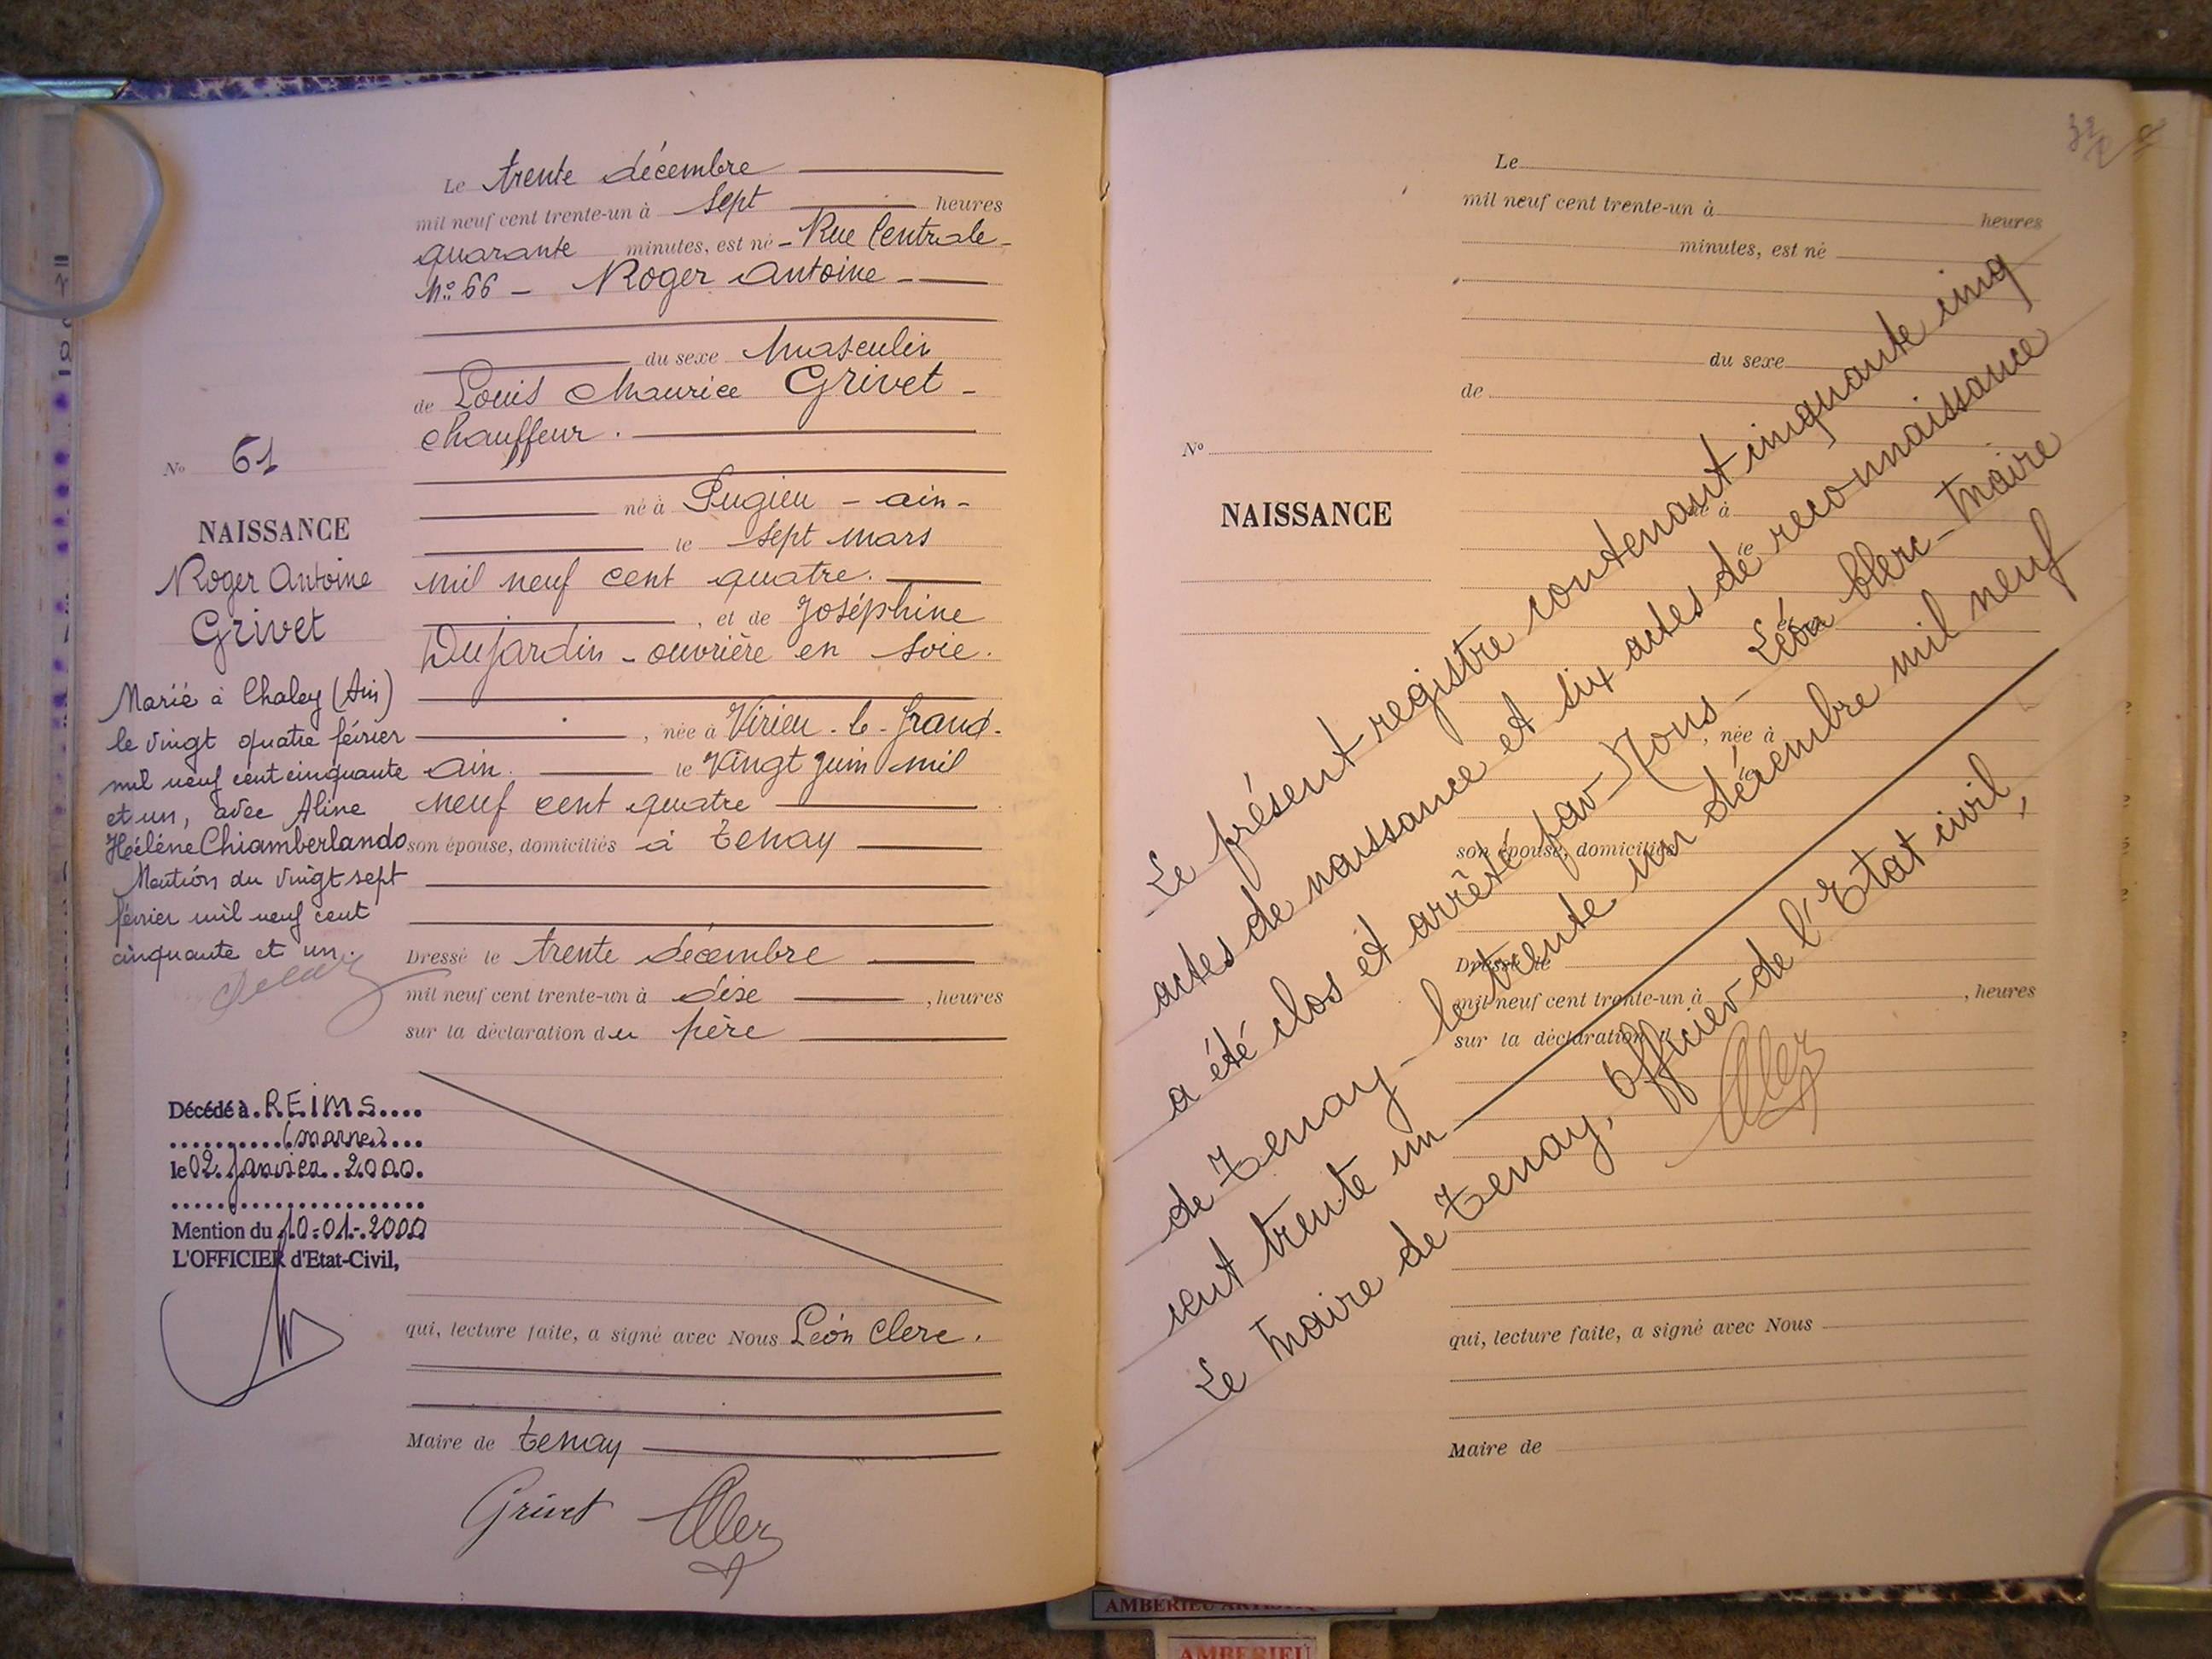 Le trente décembre
mil neuf cent trente-un à sept heures
quarante minutes, est né - Rue Centrale -
No. 66 - Roger Antoine -
du sexe Masculin
de Louis Maurice Grivet -
chauffeur.
né à Pugieu - ain -
le sept mars
mil neuf cent quatre.
, et de Joséphine
Dujardin - ouvrière en soie.
, née à Virieu-le-Grand.
ain. le vingt juin mil
neuf cent quatre
son épouse, domiciliés à Tenay
Dressé le trente décembre
mil neuf cent trente-un à dise , heures
sur la déclaration du père
qui, lecture faite, a signé avec Nous Léon Clerc.
Maire de Tenay
Grivet
No 61
NAISSANCE
Roger Antoine
Grivet
Marié à Chaley (Ain)
le vingt quatre février
mil neuf cent cinquante
et un, avec Aline
Hélène Chiamberlando
Mention du vingt sept
février mil neuf cent
cinquante et un.
Décédé à REIMS
(marne)
le 02 Janvier 2000.
Mention du 10-01-2000
L'OFFICIER d'Etat-Civil,
Le
mil neuf cent trente-un à heures
minutes, est né
du sexe
de
No
NAISSANCE
né à
le
, née à
le
son épouse, domiciliés
Dressé le
mil neuf cent trente-un à , heures
sur la déclaration d
qui, lecture faite, a signé avec Nous
Maire de
Le présent registre contenant cinquante cinq
actes de naissance et six actes de reconnaissance
a été clos et arrêté par - Nous - Léon Clerc - Maire
de Tenay - le trente un décembre mil neuf
cent trente un
Le Maire de Tenay, Officier de l'Etat civil,
AMBERIEU